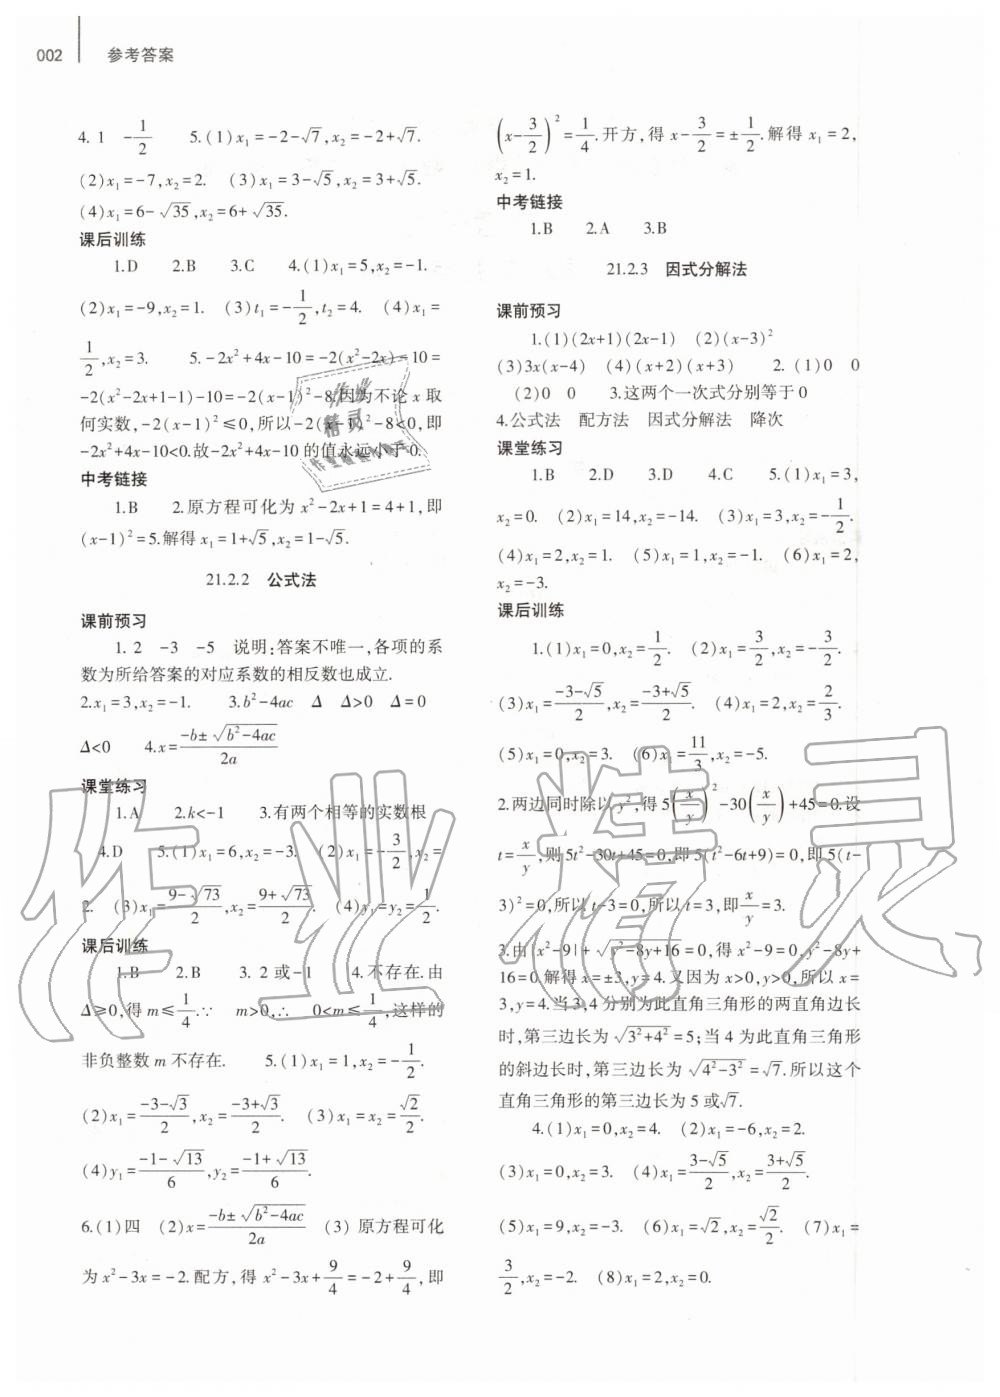 002 参考答案
4. 1 -1/2 5.(1)x₁=-2-√7,x₂=-2+√7.
(2)x₁=-7,x₂=2. (3)x₁=3-√5,x₂=3+√5.
(4)x₁=6-√35,x₂=6+√35.
课后训练
1.D 2.B 3.C 4.(1)x₁=5,x₂=-1.
(2)x₁=-9,x₂=1. (3)t₁=-1/2,t₂=4. (4)x₁=
1/2,x₂=3. 5.-2x²+4x-10=-2(x²-2x)-10=
-2(x²-2x+1-1)-10=-2(x-1)²-8.因为不论x取
何实数,-2(x-1)²≤0,所以-2(x-1)²-8<0,即
-2x²+4x-10<0.故-2x²+4x-10的值永远小于0.
中考链接
1.B 2.原方程可化为x²-2x+1=4+1,即
(x-1)²=5.解得x₁=1+√5,x₂=1-√5.
21.2.2 公式法
课前预习
1. 2 -3 -5 说明:答案不唯一,各项的系
数为所给答案的对应系数的相反数也成立.
2.x₁=3,x₂=-1. 3.b²-4ac Δ Δ>0 Δ=0
Δ<0 4.x=(-b±√(b²-4ac))/2a
课堂练习
1.A 2.k<-1 3.有两个相等的实数根
4.D 5.(1)x₁=6,x₂=-3. (2)x₁=-3/2,x₂=
2. (3)x₁=(9-√73)/2,x₂=(9+√73)/2. (4)y₁=y₂=1/2.
课后训练
1.B 2.B 3. 2或-1 4.不存在.由
Δ≥0,得m≤1/4.∵ m>0,∴ 0<m≤1/4,这样的
非负整数m不存在. 5.(1)x₁=1,x₂=-1/2.
(2)x₁=(-3-√3)/2,x₂=(-3+√3)/2. (3)x₁=x₂=√2/2.
(4)y₁=(-1-√13)/6,y₂=(-1+√13)/6.
6.(1)四 (2)x=(-b±√(b²-4ac))/2a (3) 原方程可化
为x²-3x=-2.配方,得x²-3x+9/4=-2+9/4,即
(x-3/2)²=1/4.开方,得x-3/2=±1/2.解得x₁=2,
x₂=1.
中考链接
1.B 2.A 3.B
21.2.3 因式分解法
课前预习
1.(1)(2x+1)(2x-1) (2)(x-3)²
(3)3x(x-4) (4)(x+2)(x+3) 2. (1)0 0
(2)0 0 3.这两个一次式分别等于0
4.公式法 配方法 因式分解法 降次
课堂练习
1.B 2.D 3.D 4.C 5.(1)x₁=3,
x₂=0. (2)x₁=14,x₂=-14. (3)x₁=3,x₂=-1/2.
(4)x₁=2,x₂=1. (5)x₁=1,x₂=-1. (6)x₁=2,
x₂=-3.
课后训练
1.(1)x₁=0,x₂=1/2. (2)x₁=3/2,x₂=-3/2.
(3)x₁=(-3-√5)/2,x₂=(-3+√5)/2. (4)x₁=2,x₂=2/3.
(5)x₁=0,x₂=3. (6)x₁=11/3,x₂=-5.
2.两边同时除以y²,得5(x/y)²-30(x/y)+45=0.设
t=x/y,则5t²-30t+45=0,即5(t²-6t+9)=0,即5(t-
3)²=0,所以t-3=0,所以t=3,即x/y=3.
3.由|x²-9|+√(y²-8y+16)=0,得x²-9=0,y²-8y+
16=0.解得x=±3,y=4.又因为x>0,y>0,所以x=
3,y=4.当3,4分别为此直角三角形的两直角边长
时,第三边长为√(3²+4²)=5;当4为此直角三角形
的斜边长时,第三边长为√(4²-3²)=√7.所以这个
直角三角形的第三边长为5或√7.
4.(1)x₁=0,x₂=4. (2)x₁=-6,x₂=2.
(3)x₁=0,x₂=3. (4)x₁=(3-√5)/2,x₂=(3+√5)/2.
(5)x₁=9,x₂=-3. (6)x₁=√2,x₂=√2/2. (7)x₁=
3/2,x₂=-2. (8)x₁=2,x₂=0.
作业精灵
作业
精灵